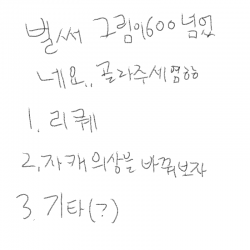 벌써 그림이600넘었
네요.. 골라주세염ㅎㅎ
1. 리퀘
2. 자캐의상을 바꿔보자
3. 기타(?)